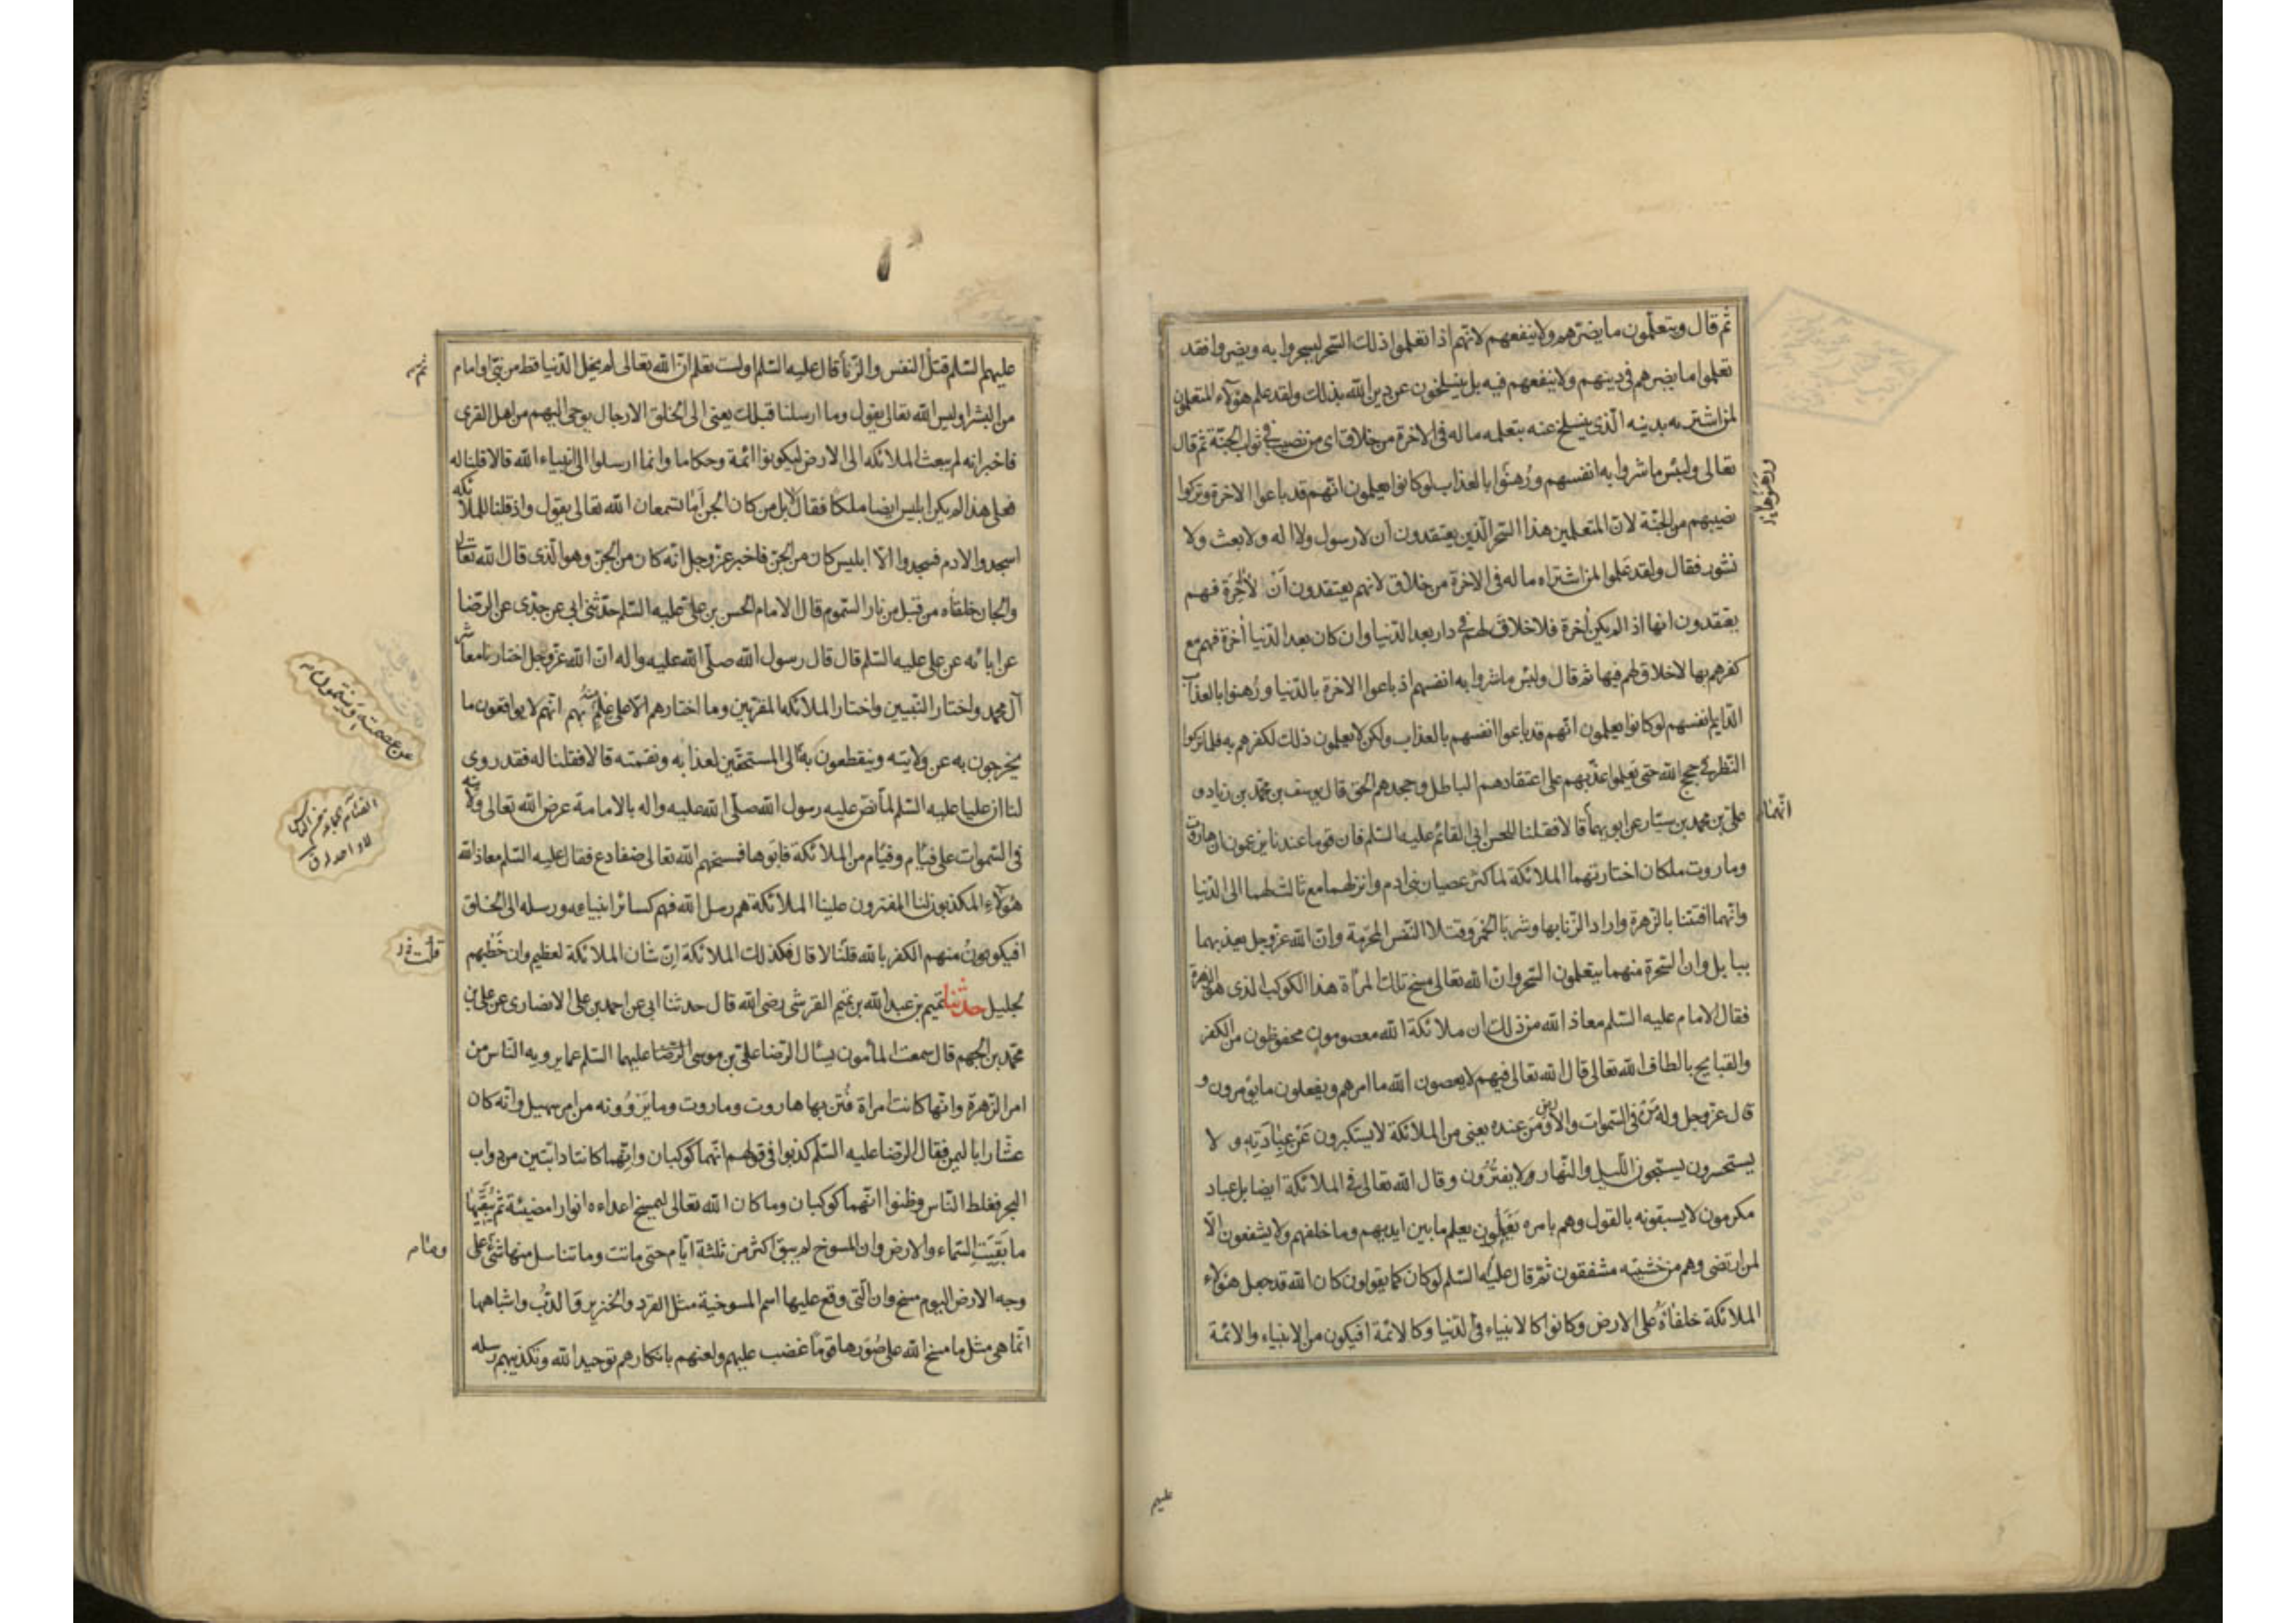 ثم قال ويتعلمون ما يضرهم ولا ينفعهم لانهم اذا تعلموا ذلك السحر ليسحروا به ويضروا فقد
تعلموا ما يضرهم في دينهم ولا ينفعهم فيه بل ينسلخون عن دين الله بذلك ولقد علم هؤلاء المتعلمون
لمن اشتريه بدينه الذي ينسلخ عنه بتعلمه ما له في الاخرة من خلاق اى من نصيب في ثواب الجنة ثم قال
تعالى ولبئس ما شروا به انفسهم ورهنوا بالعذاب لو كانوا يعلمون انهم قد باعوا الاخرة وتركوا
نصيبهم من الجنة لان المتعلمين هذا السحر الذين يعتقدون ان لا رسول ولا اله ولا بعث ولا
نشور فقال ولقد علموا لمن اشتراه ما له في الاخرة من خلاق لانهم يعتقدون أن لا أخرة فهم
يعتقدون انها اذا لم يكن أخرة فلا خلاق لهم في دار بعد الدنيا وان كان بعد الدنيا أخرة فهم مع
كفرهم بها لا خلاق لهم فيها ثم قال ولبئس ما شروا به انفسهم اذ باعوا الاخرة بالدنيا ورهنوا بالعذاب
الدايم انفسهم لو كانوا يعلمون انهم قد باعوا انفسهم بالعذاب ولكن لا يعلمون ذلك لكفرهم به فلما تركوا
النظر في حجج الله حتى يعلموا عذبهم على اعتقادهم الباطل وجحدهم الحق قال يوسف بن محمد بن زياد و
على بن محمد بن سيار عن ابويهما قالا فقلنا للحسن ابي القائم عليه السلم فان قوما عندنا يزعمون ان هاروت
وماروت ملكان اختارتهما الملائكة لما كثر عصيان بني ادم وانزلهما مع ثالث لهما الى الدنيا
وانهما افتتنا بالزهرة وارادا الزنا بها وشربا الخمر وقتلا النفس المحرمة وان الله عز وجل يعذبهما
ببابل وان السحرة منهما يتعلمون السحر وان الله تعالى مسخ تلك المرأة هذا الكوكب الذي هو الزهرة
فقال الامام عليه السلم معاذ الله من ذلك ان ملائكة الله معصومون محفوظون من الكفر
والقبايح بالطاف الله تعالى قال الله تعالى فيهم لا يعصون الله ما امرهم ويفعلون ما يؤمرون و
قال عز وجل وله من في السموات والارض ومن عنده يعنى من الملائكة لا يستكبرون عن عبادته و لا
يستحسرون يسبحون الليل والنهار ولا يفترون وقال الله تعالى في الملائكة ايضا بل عباد
مكرمون لا يسبقونه بالقول وهم بامره يعملون يعلم ما بين ايديهم وما خلفهم ولا يشفعون الا
لمن ارتضى وهم من خشيته مشفقون ثم قال عليه السلم لو كان كما يقولون كان الله قد جعل هؤلاء
الملائكة خلفاؤه على الارض وكانوا كالانبياء في الدنيا وكالائمة افيكون من الانبياء والائمة
انهما
عليهم
عليهم السلم قتل النفس والزنا قال عليه السلم اولست تعلم ان الله تعالى لم يخل الدنيا قط من نبي او امام
من البشر اوليس الله تعالى يقول وما ارسلنا قبلك يعنى الى الخلق الا رجال يوحى اليهم من اهل القرى
فاخبر انه لم يبعث الملائكه الى الارض ليكونوا ائمة وحكاما وانما ارسلوا الى انبياء الله قالا قلنا له
فعلى هذا لم يكن ابليس ايضا ملكا فقال لا بل من كان الجن أما تسمعان الله تعالى يقول واذ قلنا للملائكه
اسجدوا لادم فسجدوا الا ابليس كان من الجن فاخبر عز وجل انه كان من الجن وهو الذي قال الله تعالى
والجان خلقناه من قبل من نار السموم قال الامام الحسن بن على عليه السلم حدثني ابي عن جدي عن الرضا
عن ابائه عن على عليه السلم قال قال رسول الله صلى الله عليه واله ان الله عز وجل اختارنا معاشر
آل محمد واختار النبيين واختار الملائكه المقربين وما اختارهم الا على علم منه بهم انهم لا يواقعون ما
يخرجون به عن ولايته وينقطعون به الى المستحقين لعذابه ونقمته قالا فقلنا له فقد روى
لنا ان عليا عليه السلم لما نص عليه رسول الله صلى الله عليه واله بالامامة عرض الله تعالى ولايته
في السموات على فيام وفيام من الملائكة فابوها فمسخهم الله تعالى ضفادع فقال عليه السلم معاذ الله
هؤلاء المكذبون لنا المفترون علينا الملائكة هم رسل الله فهم كسائر انبيائه ورسله الى الخلق
افيكون منهم الكفر بالله قلنا لا قال فكذلك الملائكة ان شان الملائكة لعظيم وان خطبهم
لجليل حدثنا تميم بن عبد الله بن تميم القرشى رضى الله قال حدثنا ابى عن احمد بن على الانصارى عن على بن
محمد بن الجهم قال سمعت المأمون يسأل الرضا على بن موسى الرضا عليهما السلم عما يرويه الناس من
امر الزهرة وانها كانت امراة فتن بها هاروت وماروت وما يروونه من امر سهيل وانه كان
عشارا باليمن فقال الرضا عليه السلم كذبوا في قولهم انهما كوكبان وانهما كانتا دابتين من دواب
البحر فغلط الناس وظنوا انهما كوكبان وما كان الله تعالى ليمسخ اعداءه انوارا مضيئة ثم يبقيها
ما بقيت السماء والارض وان المسوخ لم يبق اكثر من ثلثة ايام حتى ماتت وما تناسل منها شئ على
وجه الارض اليوم مسخ وان التى وقع عليها اسم المسوخية مثل القرد والخنزير والدب واشباهها
انما هى مثل ما مسخ الله على صورها قوما غضب عليهم ولعنهم بانكارهم توحيد الله وتكذيبهم رسله